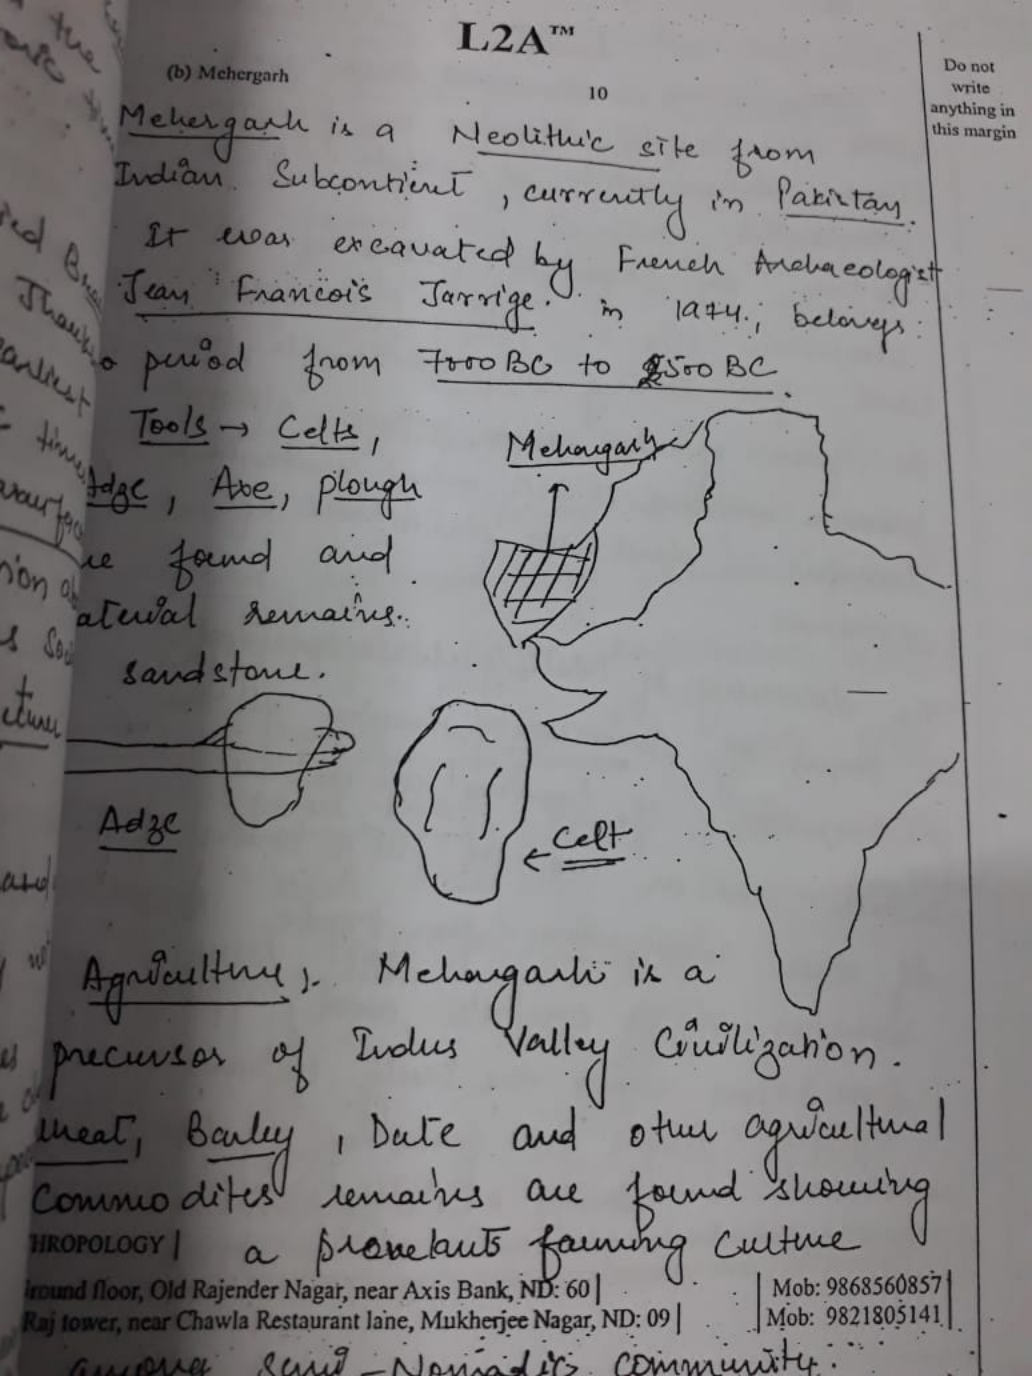 L2A™
(b) Mehergarh
10
Do not
write
anything in
this margin
Mehergarh is a Neolithic site from
Indian Subcontient, currently in Pakistan.
It was excavated by French Archaeologist
Jean Francois Jarrige. in 1974., belongs
period from 7000 BC to 2500 BC.
Tools → Celts,
Adze, Axe, plough
found and
remains.
sandstone.
Mehergarh
Adze
← Celt
Agriculture ;. Mehergarh is a
precursor of Indus Valley Civilization.
wheat, Barley, Date and other agricultural
Commodites remains are found showing
HROPOLOGY | a farming culture
round floor, Old Rajender Nagar, near Axis Bank, ND: 60 | | Mob: 9868560857 |
Raj tower, near Chawla Restaurant lane, Mukherjee Nagar, ND: 09 | | Mob: 9821805141 |
among semi-Nomadic community.